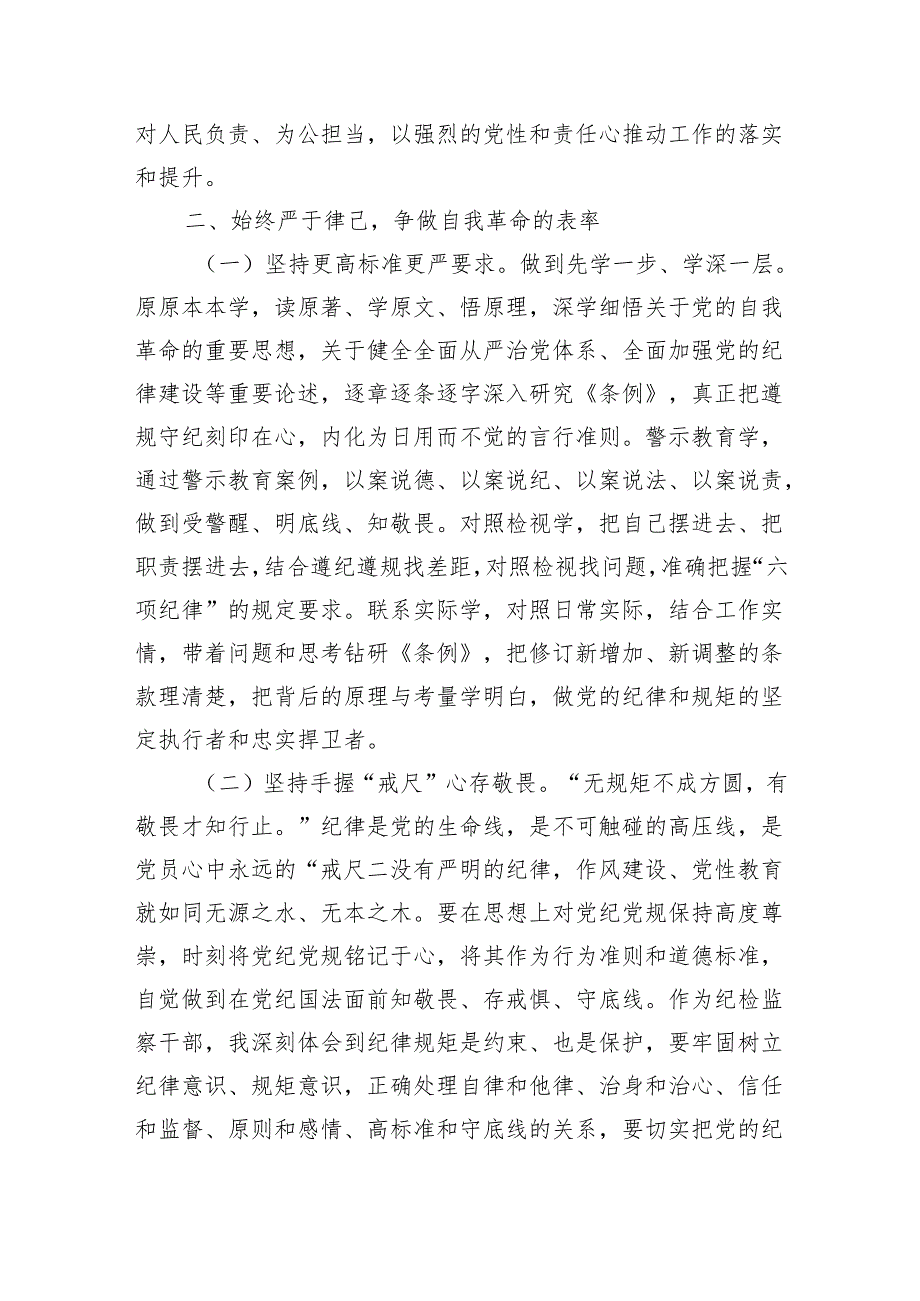 对人民负责、为公担当，以强烈的党性和责任心推动工作的落实
和提升。
二、始终严于律己，争做自我革命的表率
（一）坚持更高标准更严要求。做到先学一步、学深一层。
原原本本学，读原著、学原文、悟原理，深学细悟关于党的自我
革命的重要思想，关于健全全面从严治党体系、全面加强党的纪
律建设等重要论述，逐章逐条逐字深入研究《条例》，真正把遵
规守纪刻印在心，内化为日用而不觉的言行准则。警示教育学，
通过警示教育案例，以案说德、以案说纪、以案说法、以案说责，
做到受警醒、明底线、知敬畏。对照检视学，把自己摆进去、把
职责摆进去，结合遵纪遵规找差距，对照检视找问题，准确把握“六
项纪律”的规定要求。联系实际学，对照日常实际，结合工作实
情，带着问题和思考钻研《条例》，把修订新增加、新调整的条
款理清楚，把背后的原理与考量学明白，做党的纪律和规矩的坚
定执行者和忠实捍卫者。
（二）坚持手握“戒尺”心存敬畏。“无规矩不成方圆，有
敬畏才知行止。”纪律是党的生命线，是不可触碰的高压线，是
党员心中永远的“戒尺二没有严明的纪律，作风建设、党性教育
就如同无源之水、无本之木。要在思想上对党纪党规保持高度尊
崇，时刻将党纪党规铭记于心，将其作为行为准则和道德标准，
自觉做到在党纪国法面前知敬畏、存戒惧、守底线。作为纪检监
察干部，我深刻体会到纪律规矩是约束、也是保护，要牢固树立
纪律意识、规矩意识，正确处理自律和他律、治身和治心、信任
和监督、原则和感情、高标准和守底线的关系，要切实把党的纪